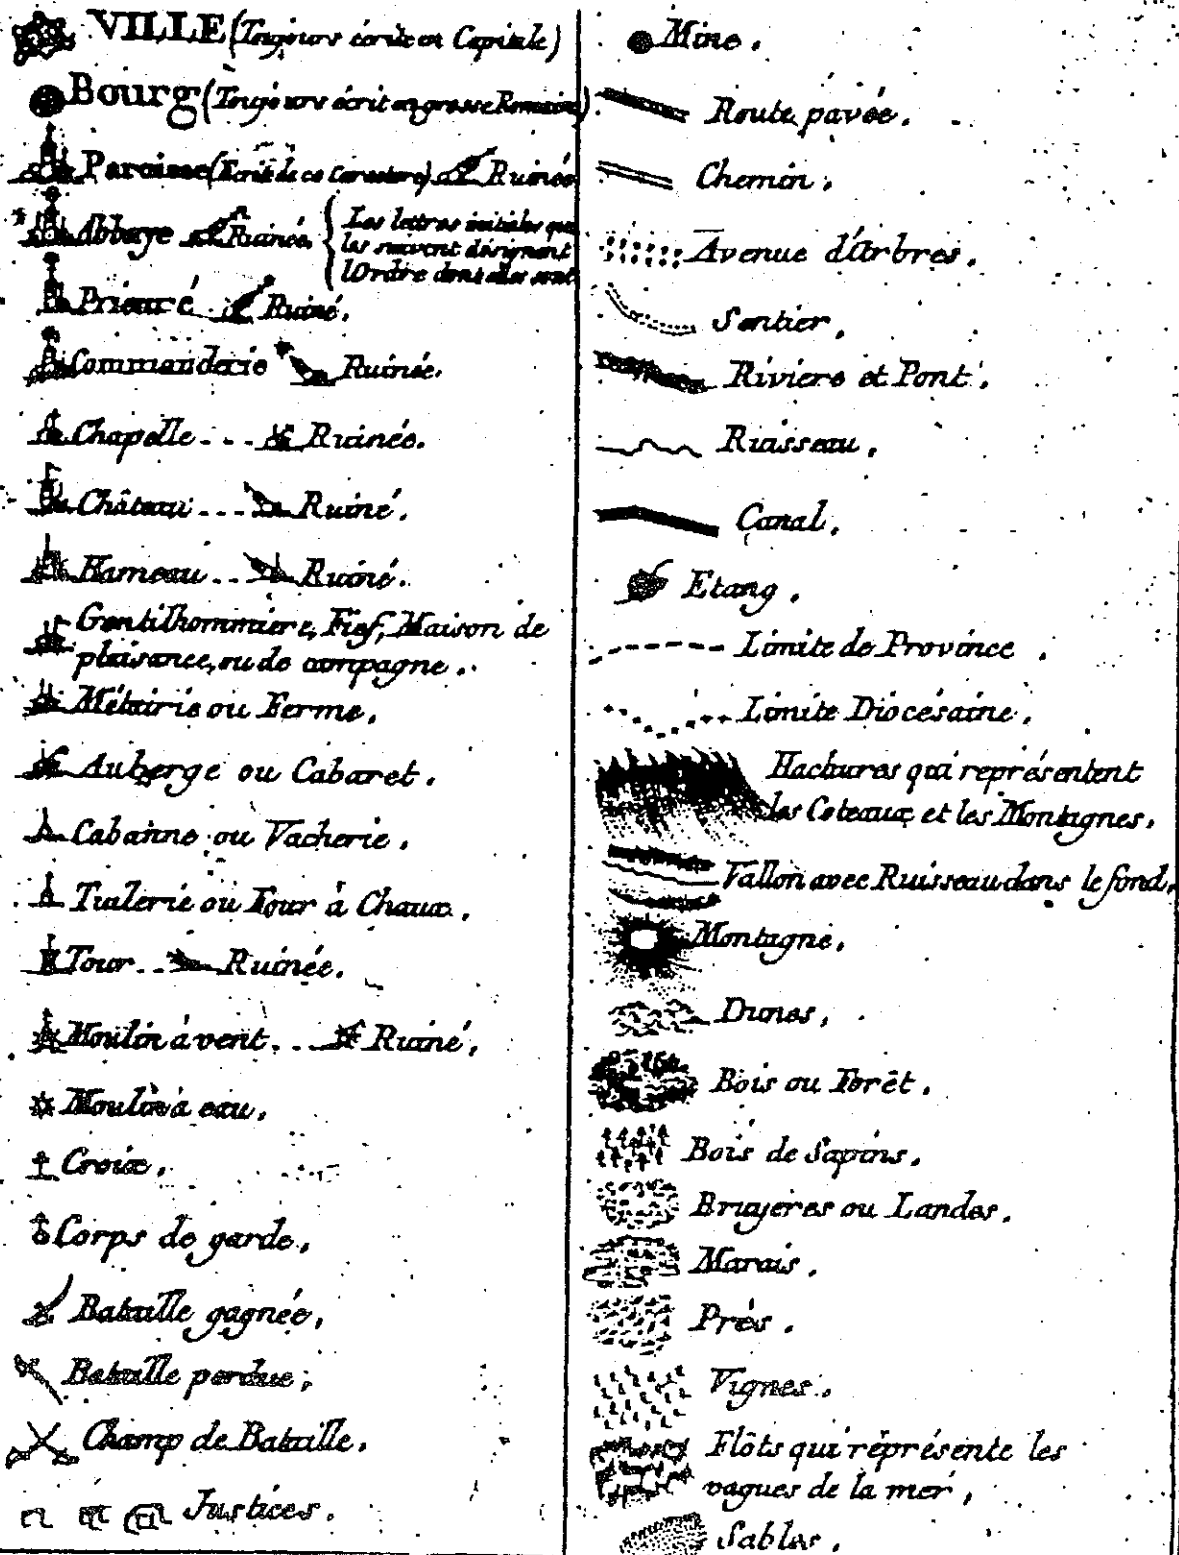 VILLE (Toujours écrite en Capitale)
Bourg (Toujours écrit en grosse Romaine)
Paroisse (Ecrite de ce Caractere) Ruinée
Abbaye Ruinée. { Les lettres initiales qui
les suivent désignent
l'Ordre dont elles sont
Prieuré Ruiné.
Commanderie Ruinée.
Chapelle Ruinée.
Château Ruiné.
Hameau Ruiné.
Gentilhommiere, Fief, Maison de
plaisance, ou de campagne.
Métairie ou Ferme,
Auberge ou Cabaret.
Cabanne ou Vacherie.
Tuilerie ou Four à Chaux.
Tour Ruinée.
Moulin à vent. Ruiné,
Moulin à eau,
Croix,
Corps de garde,
Bataille gagnée,
Bataille perdue,
Champ de Bataille.
Justices.
Mine.
Route pavée.
Chemin.
Avenue d'Arbres.
Sentier,
Riviere et Pont,
Ruisseau,
Canal.
Etang.
Limite de Province.
Limite Diocésaine.
Hachures qui représentent
les Coteaux et les Montagnes,
Vallon avec Ruisseau dans le fond,
Montagne,
Dunes,
Bois ou Forêt.
Bois de Sapins,
Bruyeres ou Landes.
Marais.
Prés.
Vignes.
Flôts qui réprésente les
vagues de la mer,
Sables.